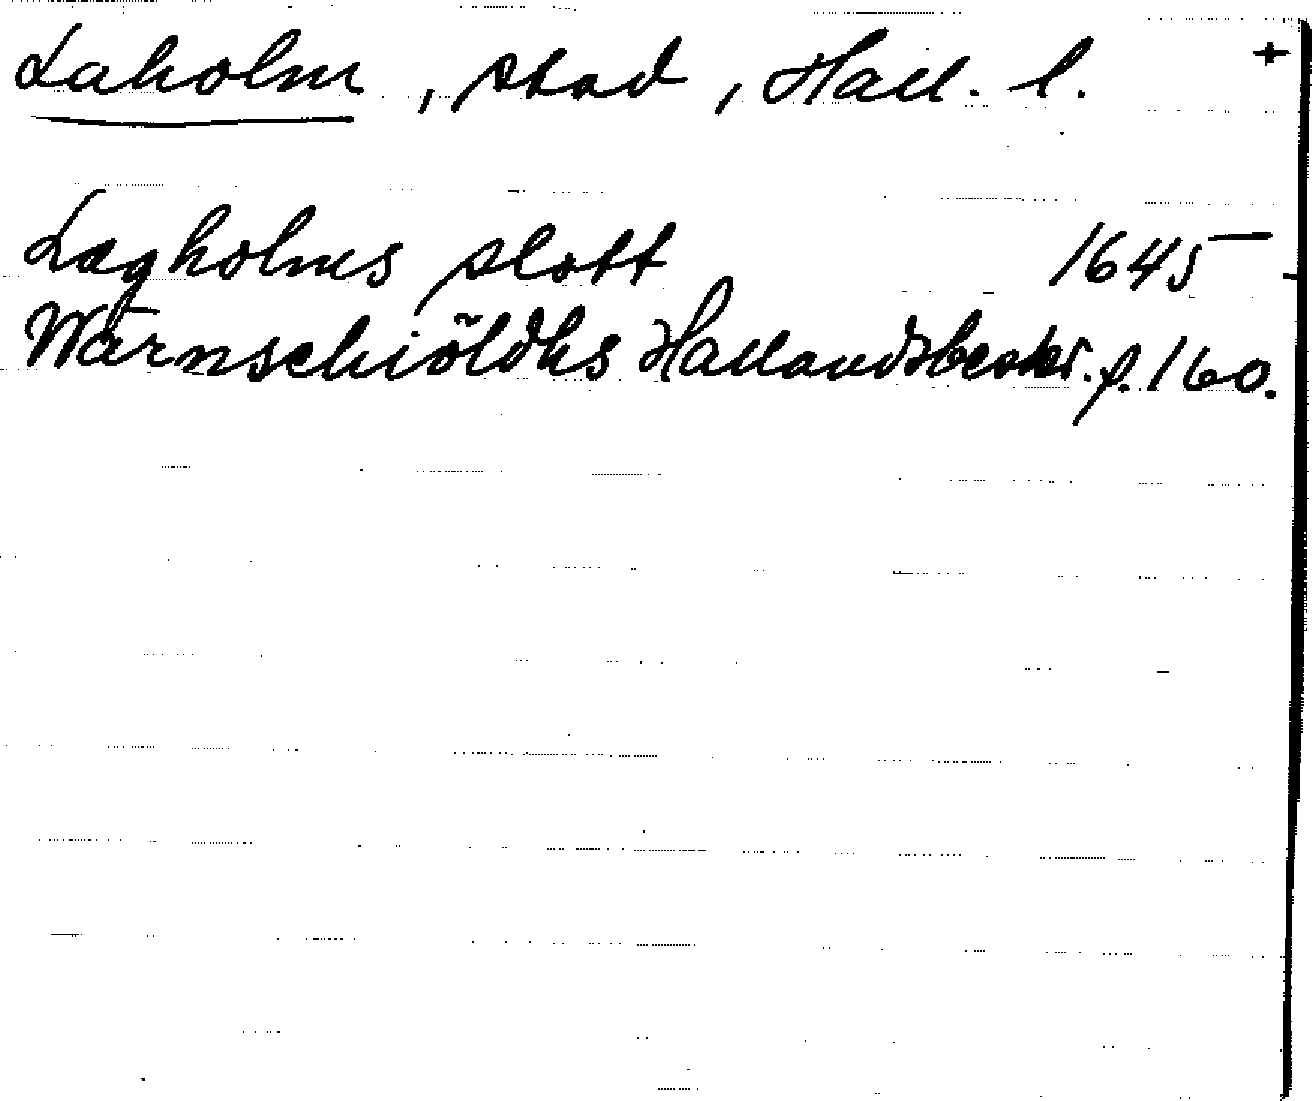 Laholm, stad, Hall. l. +
Lagholms slott 1645
Wärnschiöldhs Hallandsbeskr. p. 160.